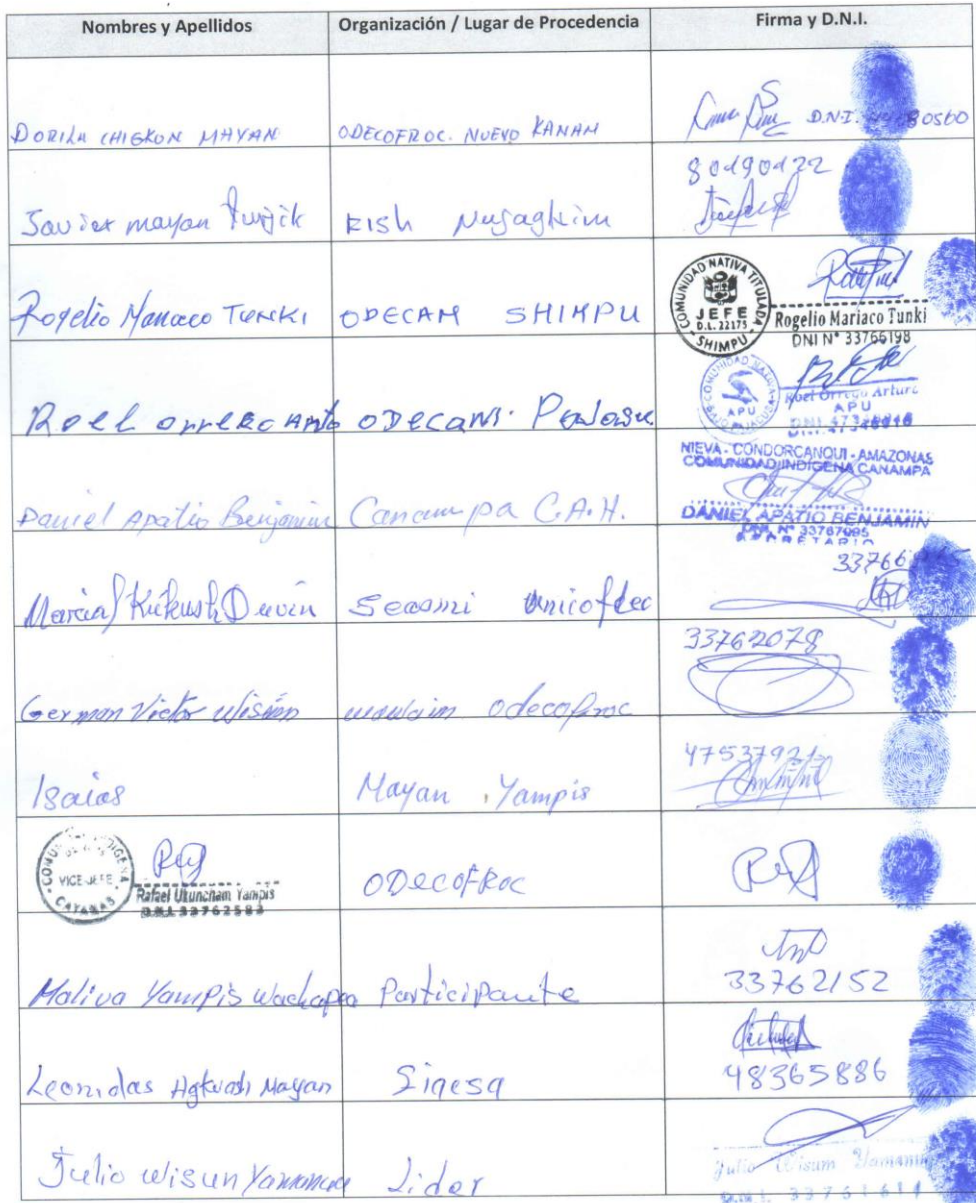 Nombres y Apellidos Organización / Lugar de Procedencia Firma y D.N.I.
DORILA CHIGKON MAYAN ODECOFROC. NUEVO KANAM D.N.I. 0560
Javier mayan Tunjik KISH Nujagkim 80490422
Rogelio Mariaco TUNKI ODECAM SHIMPU
COMUNIDAD NATIVA TITULADA
JEFE
D.L. 22175
SHIMPU
Rogelio Mariaco Tunki
DNI N° 33766198
Roel orrego ODECAM
COMUNIDAD NATIVA
APU
PAJACUSA
Roel Orrego Arturo
APU
D.N.I.
Daniel Apatio Benjamin Canampa C.A.H.
NIEVA - CONDORCANQUI - AMAZONAS
COMUNIDAD INDIGENA CANAMPA
DANIEL APATIO BENJAMIN
DNI. N° 33767095
SECRETARIO
Marcial Kukush Devin Seasmi Unicoftec 33766
German Victor Wisum wawaim odecofroc 33762078
Isaias Mayan Yampis 4753792
COMUNIDAD INDIGENA
VICE-JEFE
CAYAMAS
Rafael Ukuncham Yampis
D.N.I. 33762583
ODECOFROC
Maliva Yampis Wachapea Participante 33762152
Leonidas Agkuash Mayan Sigesa 48365886
Julio Wisun Yamanua Lider
Julio Wisum
D.N.I. 33761611